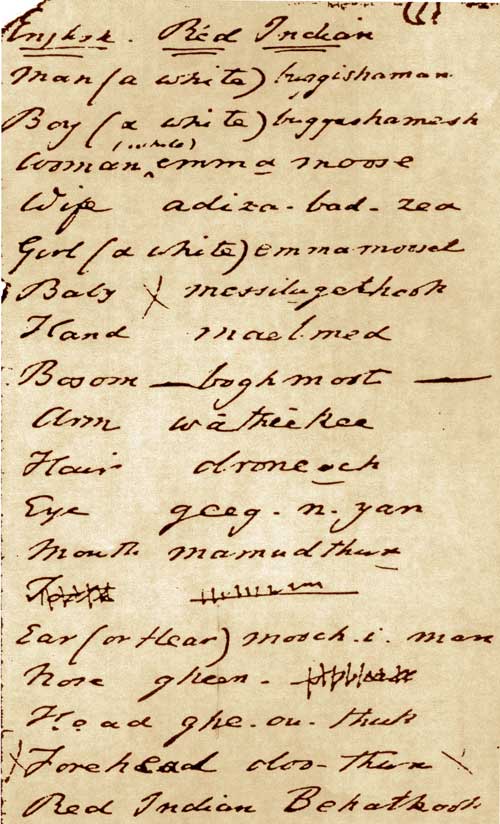 English. Réd Indian
Man (a white) bugishaman
Boy (a white) buggeshamesh
Woman (white) emma moose
Wife adiza-bad-zea
Girl (a white) emmamoosel
Baby X messilugethook
Hand maelmed
Bosom — boghmoot —
Arm wātheēkee
Hair drone och
Eye geeg-n-yan
Mouth mamudthun
Ear (or Hear) mooch.i.man
Nose gheen-
Head ghe-ou-thuk
X Forehead doo-thun \
Red Indian Behathook